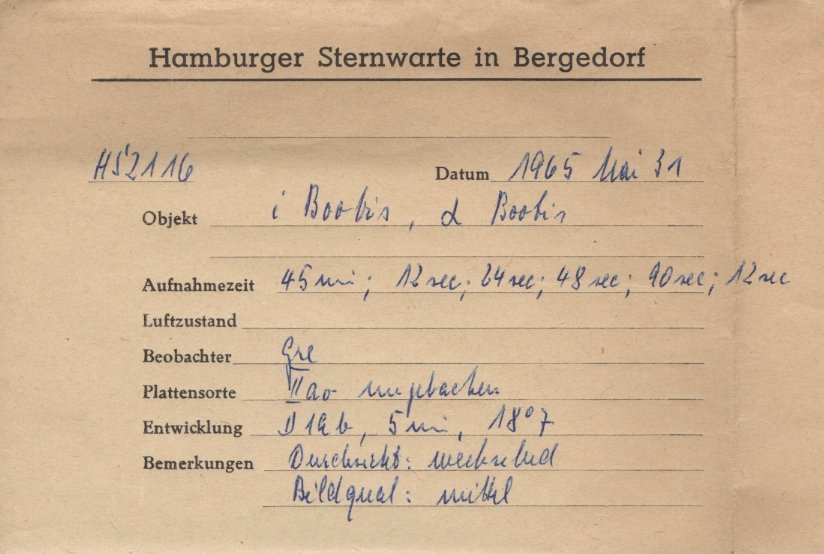 Hamburger Sternwarte in Bergedorf
HS2116 Datum 1965 Mai 31
Objekt i Bootis, α Bootis
Aufnahmezeit 45 min; 12 sec; 24 sec; 48 sec; 90 sec; 12 sec
Luftzustand
Beobachter Gre
Plattensorte IIao ungebacken
Entwicklung D19b, 5 min, 18°7
Bemerkungen Durchsicht: wechselnd
Bildqual: mittel